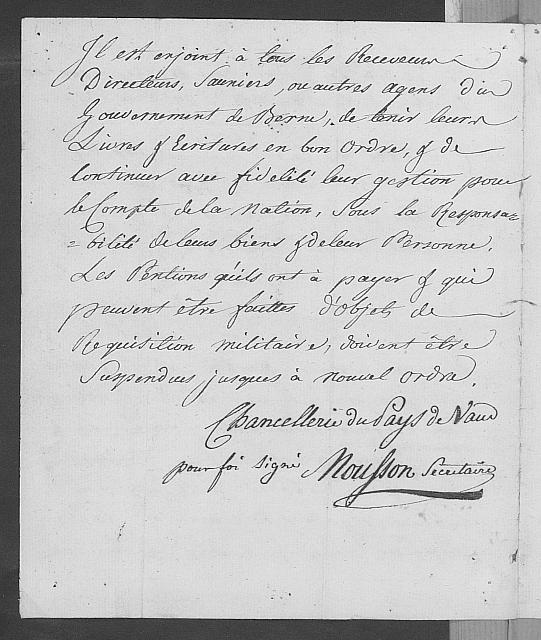 Il est enjoint à tous les Receveurs
Directeurs, Sauniers, ou autres agens du
Gouvernement de Berne, de tenir leurs
Livres & Ecritures en bon Ordre, & de
Continuer avec fidelité leur gestion pour
le Compte de la Nation, Sous la Responsa=
=bilité de leurs biens & de leur Personne.
Les Pentions qu'ils ont à payer & qui
peuvent être faittes d'objets de
Requisition militaire, doivent être
Suspendues jusques à nouvel Ordre.
Chancellerie du Pays de Vaud
pour foi signé Mousson Sécretaire